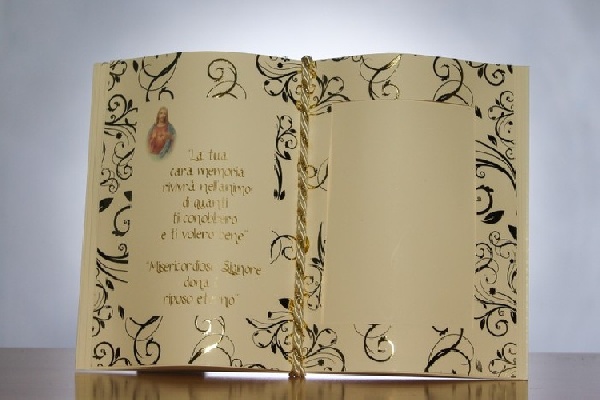 "La tua
cara memoria
rivivrà nell'animo
di quanti
ti conobbero
e ti volero bene"
"Misericordioso Signore
dona
riposo eterno"